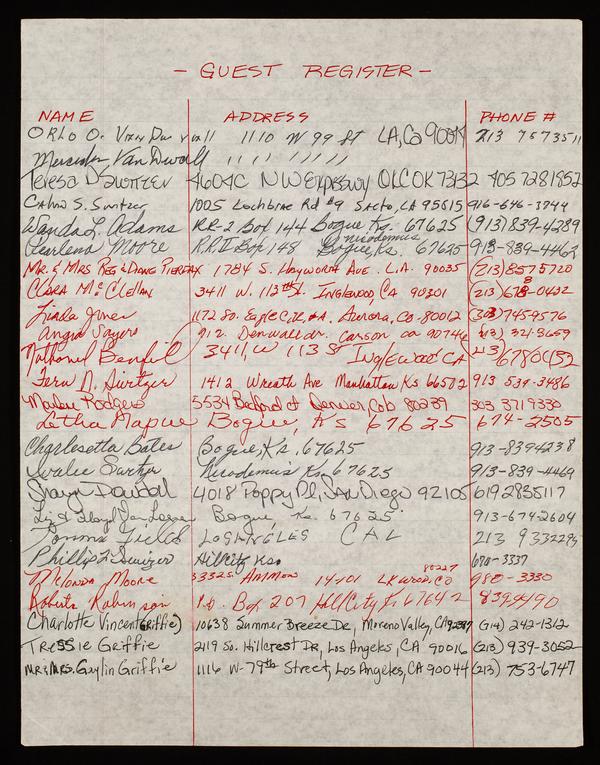 - GUEST REGISTER -
NAME ADDRESS PHONE #
ORLO O. 1110 W 99 St LA, Ca 213 7573511
Mercedes Van Duvall " " " "
Teresa D Switzer 4604C NW Expressway OKC OK 73132 405 7281852
Calvin S. Switzer 1005 Lochbrae Rd #9 Sacto, CA 95815 916-646-3944
Wanda L. Adams RR-2 Box 144 Bogue Ks. 67625 (913) 839-4289
Pearlena Moore R.R. II Box 148 Nicodemus Bogue, Ks. 67625 913-839-4462
MR. & MRS REG & DANG PIERFAX 1784 S. HAYWORTH AVE. L.A. 90035 (213) 8575720
CLARA MCCLELLAN 3411 W. 113th St. INGLEWOOD, CA 90301 (213) 678-0432
Linda Jones 1172 So. Eagle Cir, #A. Aurora, CO. 80012 (303) 7459576
Angia Sayers 912 Denwall dr. Carson ca 90746 (213) 321-3659
Nathaniel Benfil 3411 W 113 St Inglewood CA (213) 6780432
Fern N. Switzer 1412 Wreath Ave Manhattan Ks 66502 913 539-3486
Marlu Rodgers 5534 Bedford ct Denver, Colo 80239 303 3719330
Letha Mapue Bogue, Ks 67625 674-2505
Charlesetta Bates Bogue, Ks. 67625 913-8394238
Ivalee Switzer Nicodemus Ks. 67625 913-839-4469
Shayn Duvall 4018 Poppy Pl, San Diego 92105 619 2835117
Liz & Lloyd Van Bogue, Ks. 67625 913-674-2604
Tommie Fields LOS ANGLES CAL 213 9332295
Phillip L. Switzer Hill City Kso 680-3337
Melonda Moore 3332 S. Ammon 14-101 LKWOOD, CO 80227 980-3330
Roberta Robinson P.O. Box 207 Hill City, Ks 67642 8394490
Charlotte Vincent (Griffie) 10638 Summer Breeze Dr, Moreno Valley, CA (714) 242-1312
Tressie Griffie 2119 So. Hillcrest Dr, Los Angeles, CA 90016 (213) 939-3052
MR & MRS. Gaylin Griffie 1116 W-79th Street, Los Angeles, CA 90044 (213) 753-6747